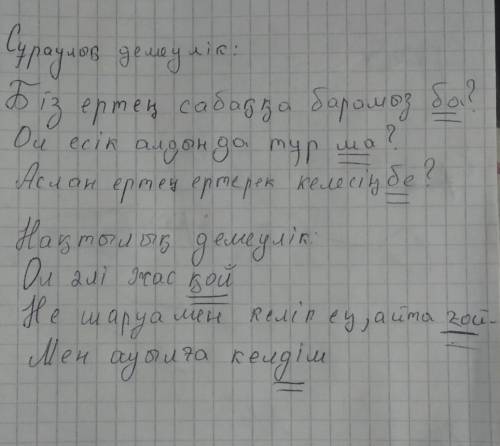 Сұраулық демеулік:
Біз ертең сабаққа барамыз ба?
Ол есік алдында тұр ма?
Аслан ертең ертерек келесің бе?
Нақтылық демеулік:
Ол әлі жас қой
Не шаруамен келіп ең, айта ғой-
Мен ауылға келдім